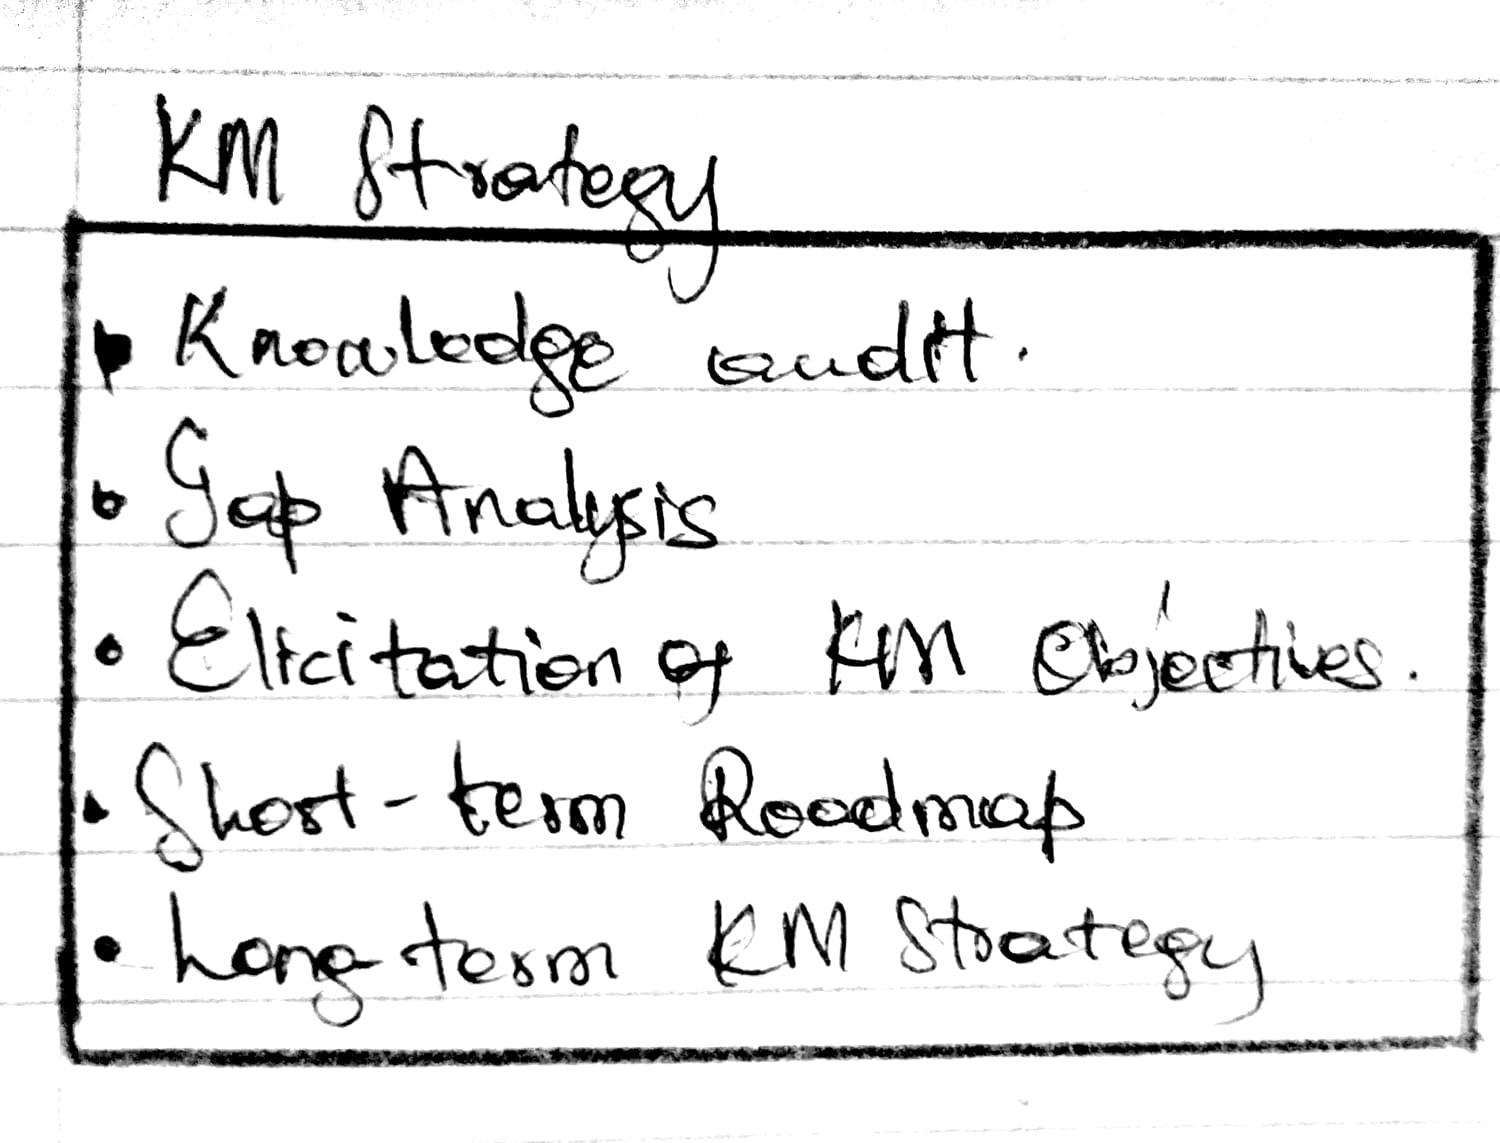 KM Strategy
• Knowledge audit.
• Gap Analysis
• Elicitation of KM Objectives.
• Short-term Roadmap
• Long-term KM Strategy